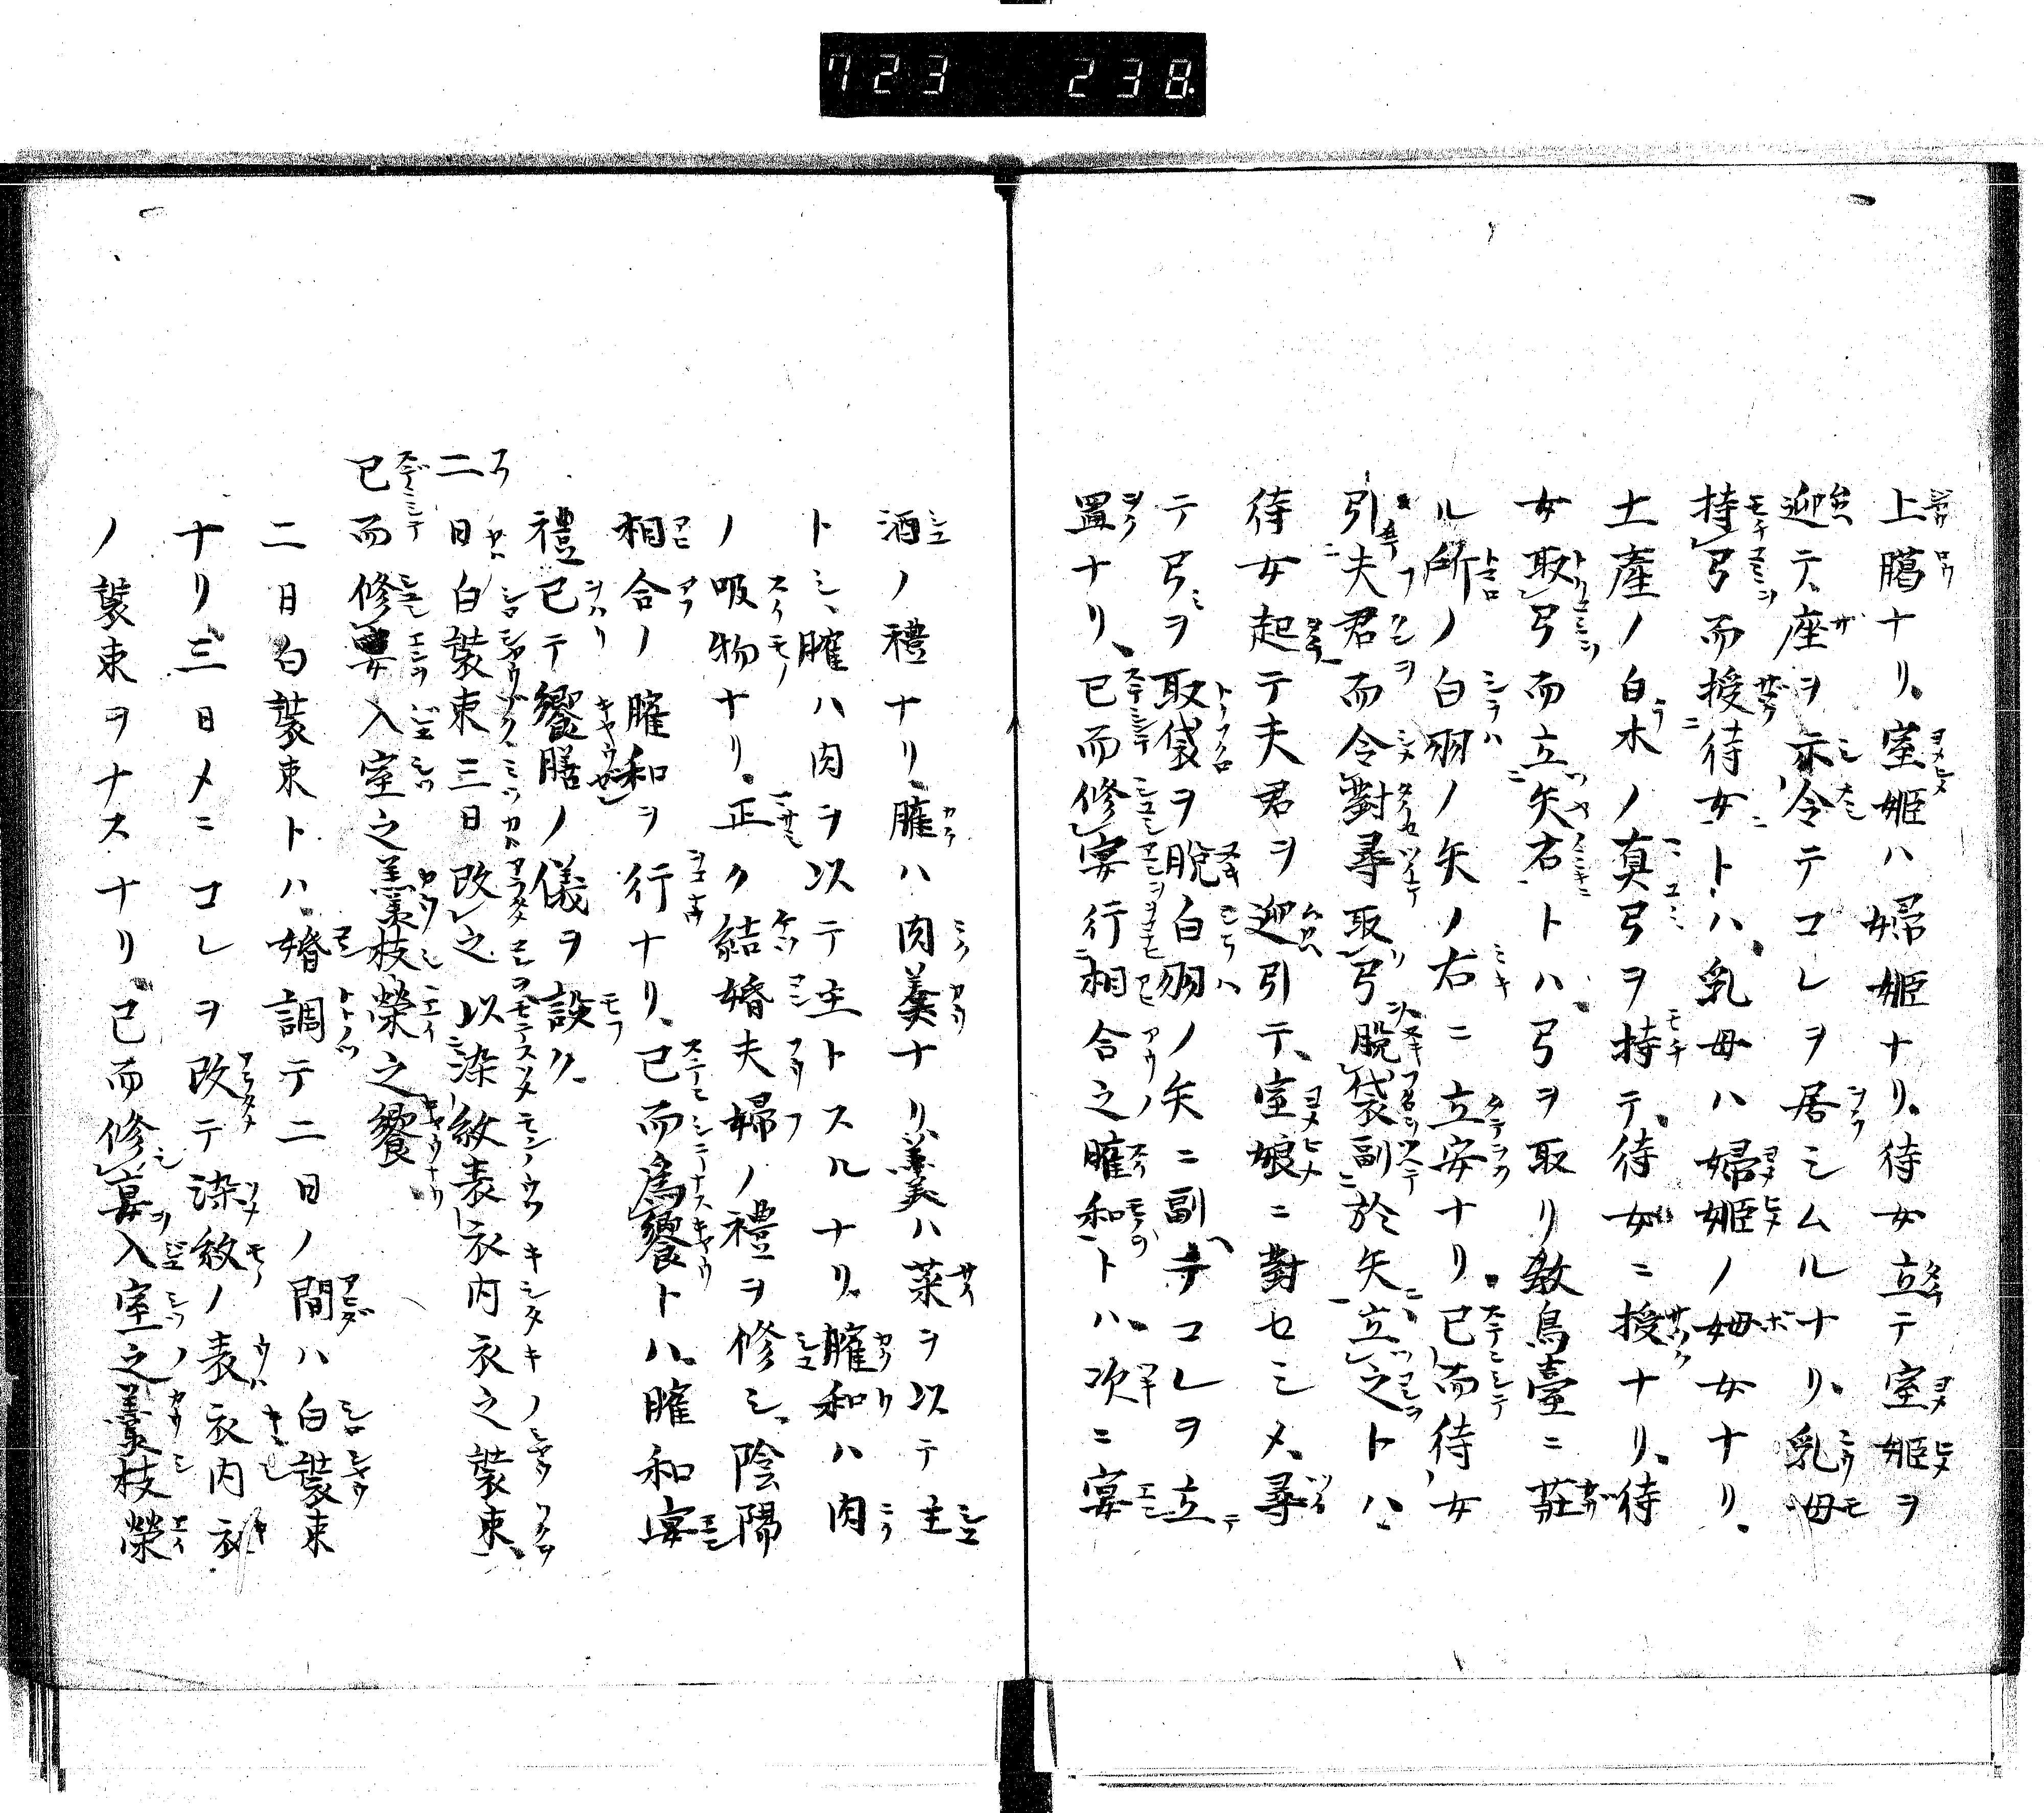 723 238.
上臈ナリ。室姫ハ婦姫ナリ。待女立テ室姫ヲ
迎テ、座ヲ示令テコレヲ居シムルナリ。乳母
持弓而授待女トハ、乳母ハ婦姫ノ姆女ナリ。
土産ノ白木ノ真弓ヲ持テ、待女ニ授ナリ。待
女取弓而立矢右トハ、弓ヲ取リ敎鳥臺ニ莊
ル所ノ白羽ノ矢ノ右ニ立安ナリ。已而待女
引夫君而令對尋取弓脫袋副於矢立之トハ、
待女起テ夫君ヲ迎引テ、室娘ニ對セシメ、尋
テ弓ヲ取袋ヲ脫白羽ノ矢ニ副テコレヲ立
置ナリ。已而修宴行相合之臛和トハ、次ニ宴
酒ノ禮ナリ。臛ハ肉羹ナリ。羹ハ菜ヲ以テ主
トシ、臛ハ肉ヲ以テ主トスルナリ。臛和ハ肉
ノ吸物ナリ。正ク結婚夫婦ノ禮ヲ修シ、陰陽
相合ノ臛和ヲ行ナリ。已而為饗トハ、臛和宴
禮已テ饗膳ノ儀ヲ設ク。
二日白裝束三日改之以染紋表衣内衣之裝束、
已而修宴入室之羹枝榮之饗、
二日白裝束トハ、婚調テ二日ノ間ハ白裝束
ナリ。三日メニコレヲ改テ染紋ノ表衣内衣
ノ裝束ヲナスナリ。已而修宴入室之羹枝榮